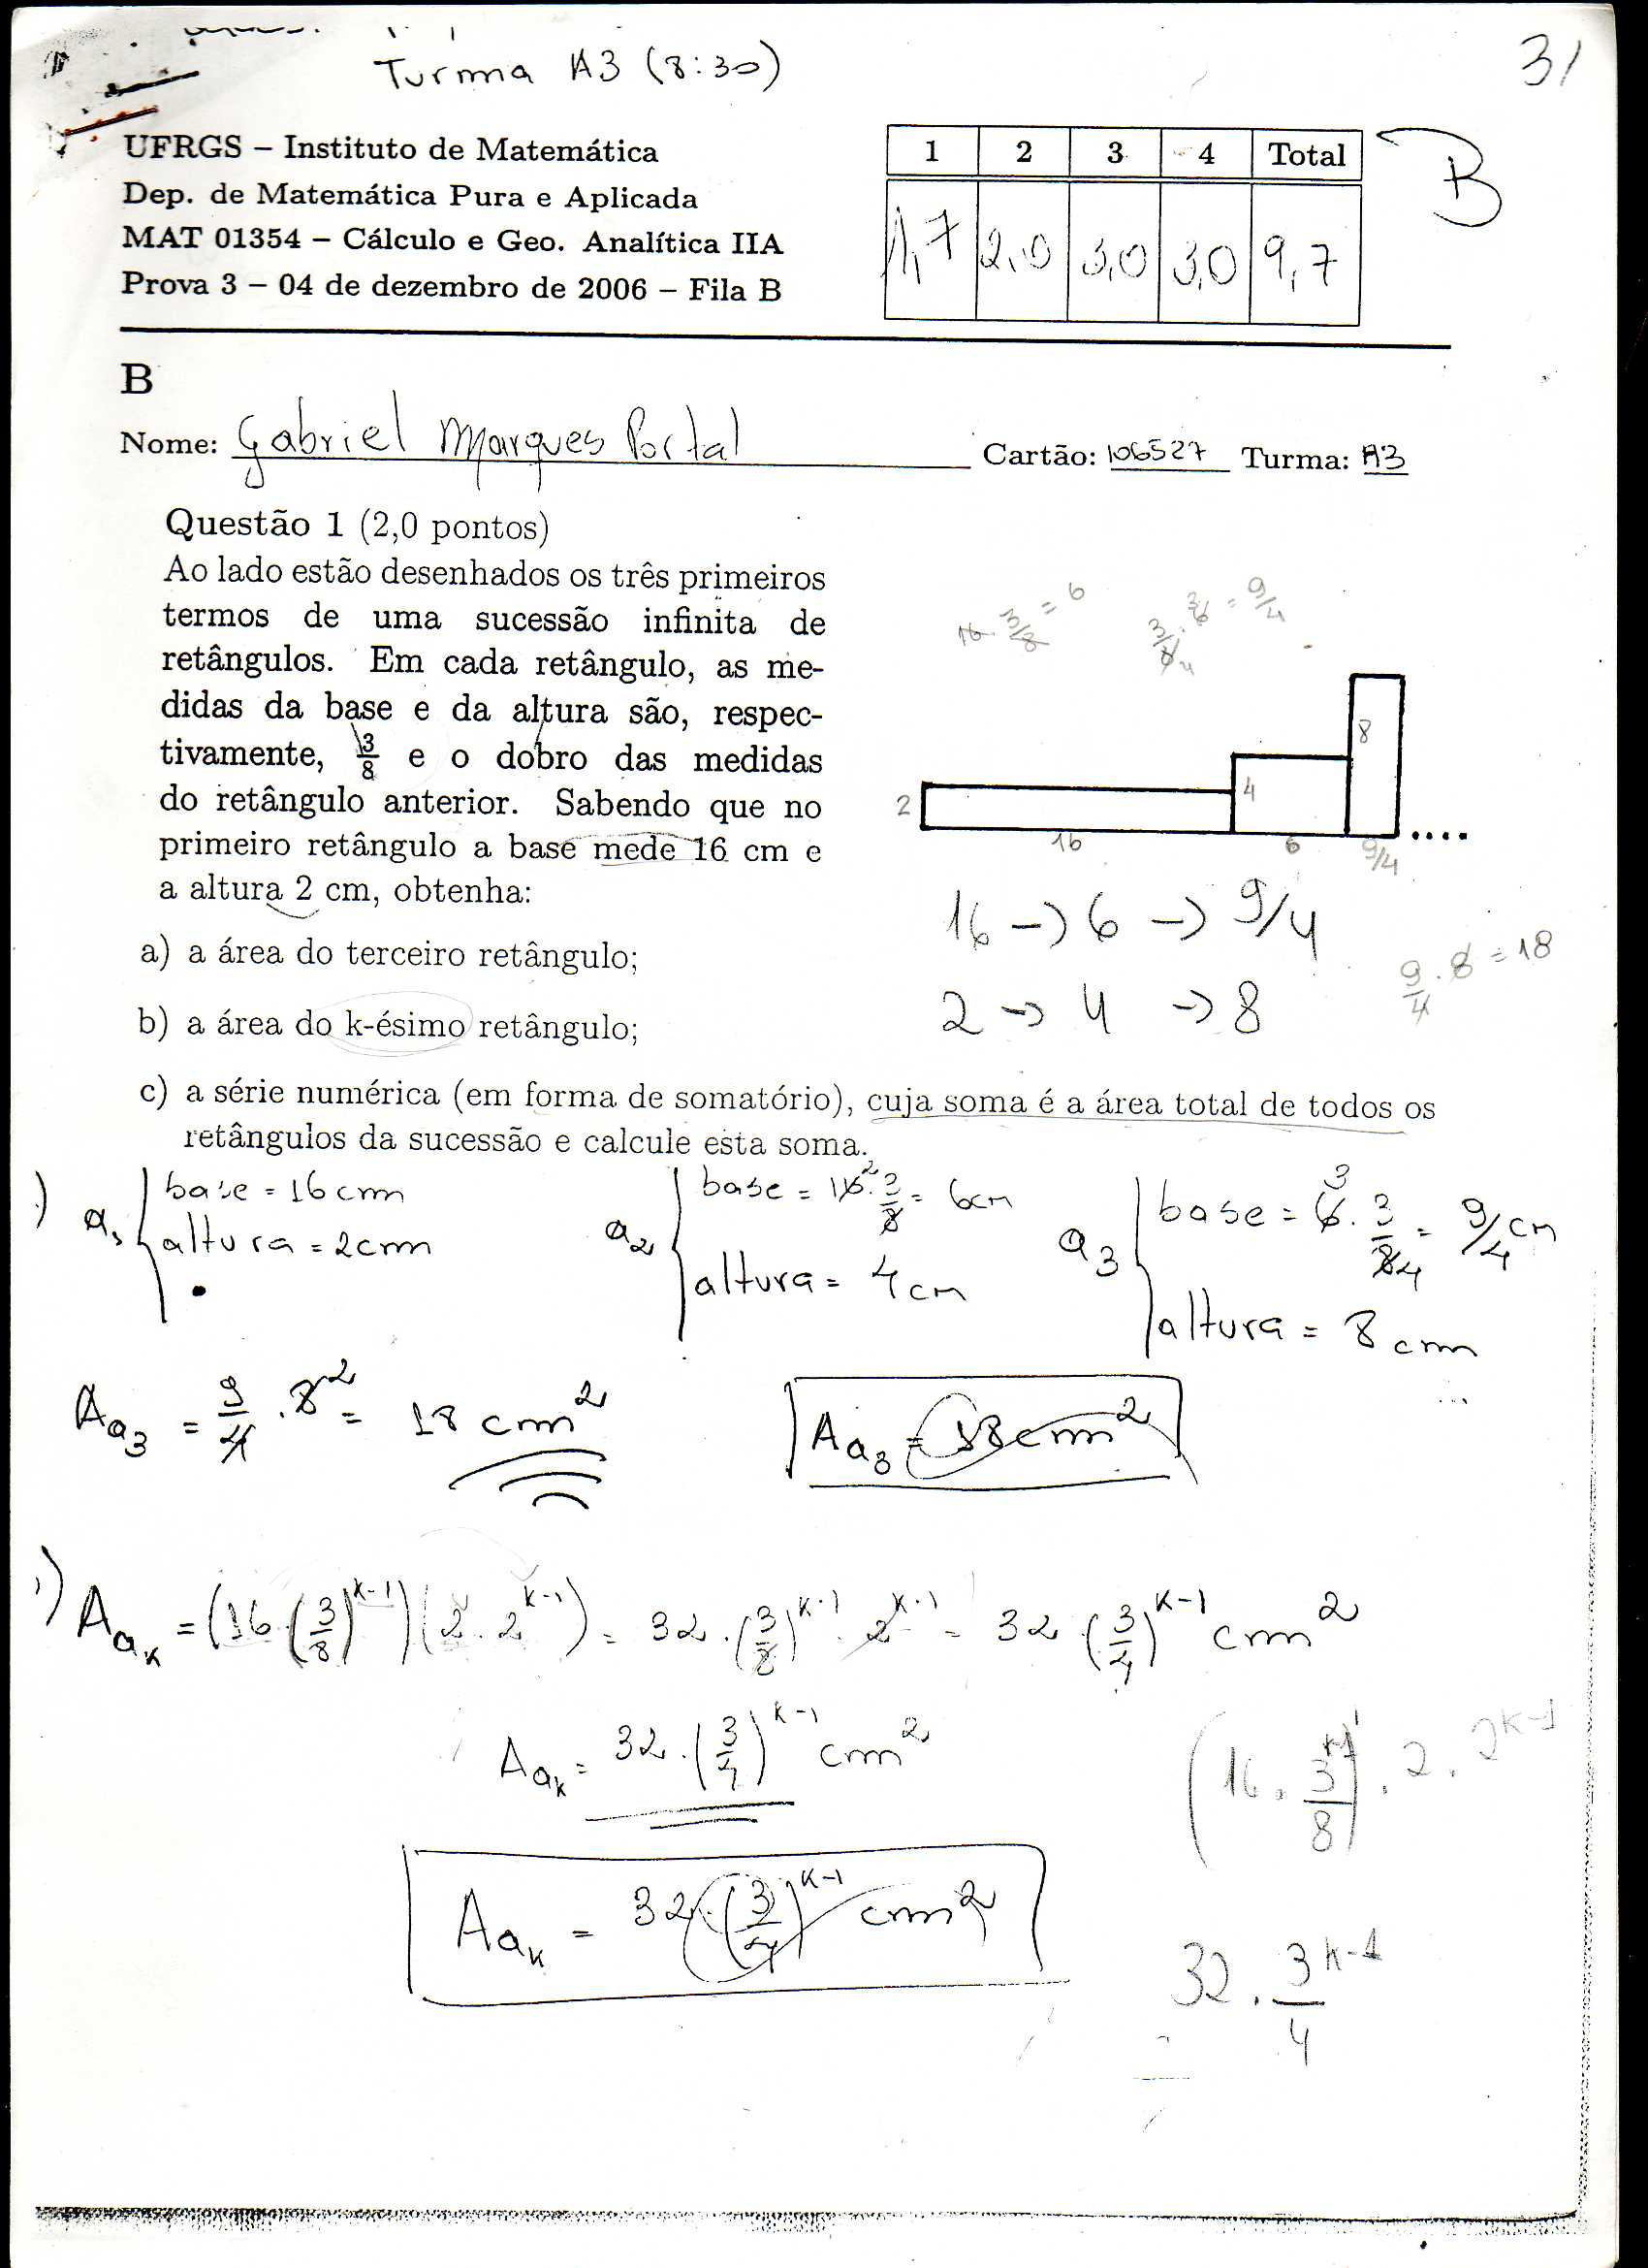 Turma A3 (8:30)
31
UFRGS – Instituto de Matemática
Dep. de Matemática Pura e Aplicada
MAT 01354 – Cálculo e Geo. Analítica IIA
Prova 3 – 04 de dezembro de 2006 – Fila B
1 2 3 4 Total
1,7 2,0 3,0 3,0 9,7
B
B
Nome: Gabriel Marques Portal Cartão: 106527 Turma: A3
Questão 1 (2,0 pontos)
Ao lado estão desenhados os três primeiros
termos de uma sucessão infinita de
retângulos. Em cada retângulo, as me-
didas da base e da altura são, respec-
tivamente, 3/8 e o dobro das medidas
do retângulo anterior. Sabendo que no
primeiro retângulo a base mede 16 cm e
a altura 2 cm, obtenha:
16 · 3/8 = 6
3/8 · 6 = 9/4
2 16 4 6 8 9/4 ....
16 → 6 → 9/4
2 → 4 → 8
9/4 · 8 = 18
a) a área do terceiro retângulo;
b) a área do k-ésimo retângulo;
c) a série numérica (em forma de somatório), cuja soma é a área total de todos os
retângulos da sucessão e calcule esta soma.
a₁ { base = 16cm
altura = 2cm
a₂ { base = 16 · 3/8 = 6cm
altura = 4cm
a₃ { base = 6 · 3/8 = 9/4 cm
altura = 8cm
A a₃ = 9/4 · 8 = 18 cm²
A a₃ = 18cm²
A aₖ = (16 · (3/8)^(k-1)) (2 · 2^(k-1)) = 32 · (3/8)^(k-1) · 2^(k-1) = 32 · (3/4)^(k-1) cm²
A aₖ = 32 · (3/4)^(k-1) cm²
(16 · 3^(k-1)/8) · 2 · 2^(k-1)
A aₖ = 32 · (3/4)^(k-1) cm²
32 · 3^(k-1)/4